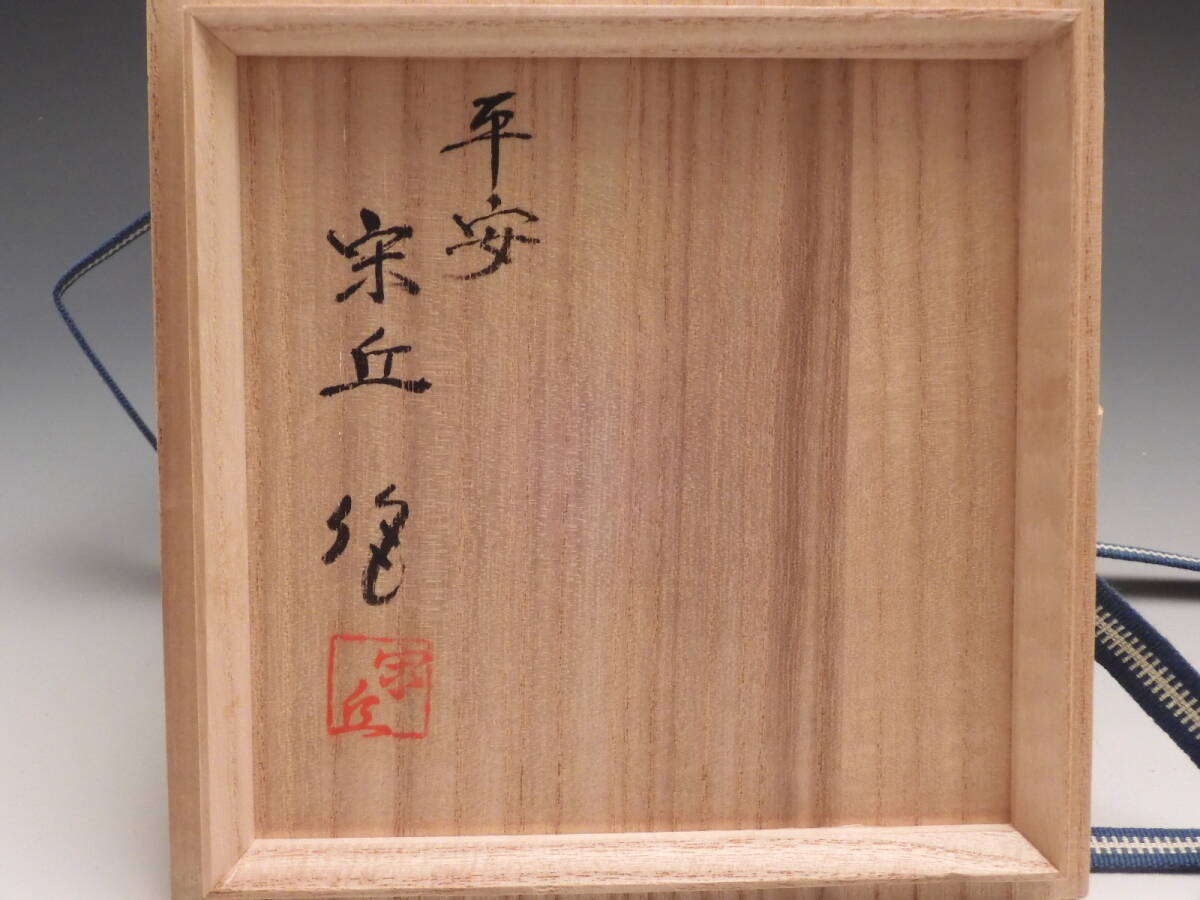 平安
宗丘 作
宗丘